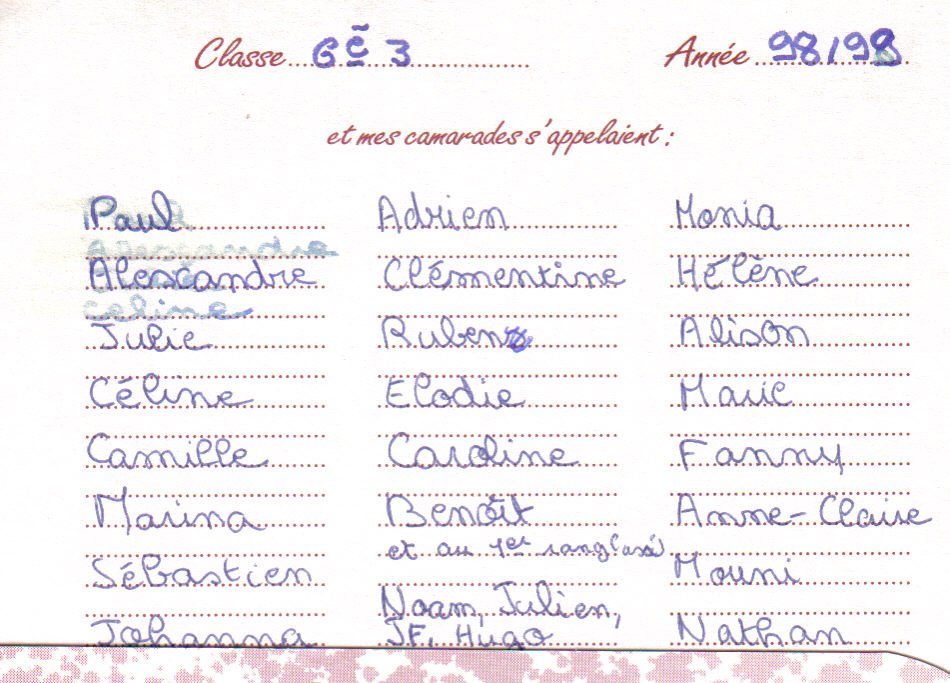 Classe 6è 3
Année 98/98
et mes camarades s'appelaient :
Paul
Alexandre
Alexandre
Céline
Julie
Céline
Camille
Marina
Sébastien
Johanna
Adrien
Clémentine
Ruben
Elodie
Caroline
Benoît
et au 1er rang (assi)
Noam, Julien,
JF, Hugo
Monia
Hélène
Alison
Marie
Fanny
Anne-Claire
Mouni
Nathan